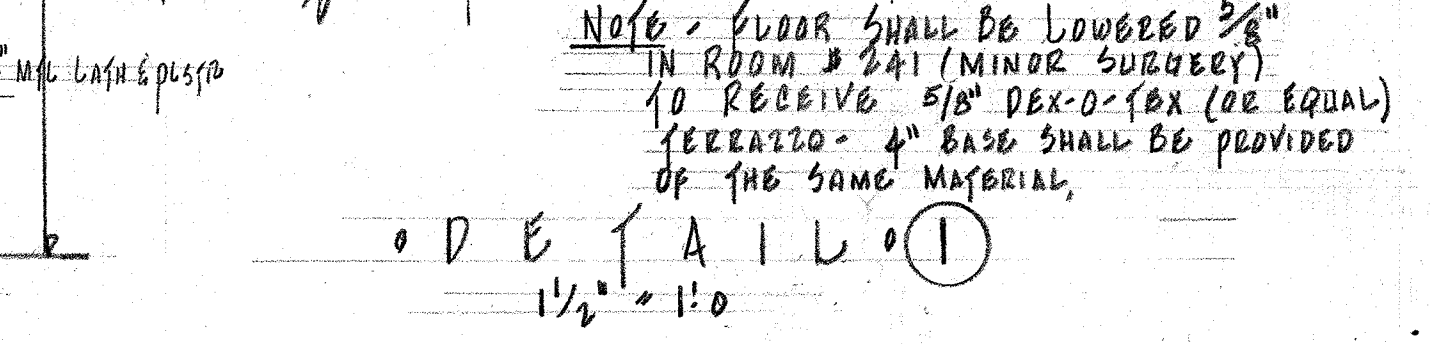 NOTE - FLOOR SHALL BE LOWERED 5/8"
IN ROOM # 241 (MINOR SURGERY)
TO RECEIVE 5/8" DEX-O-TEX (OR EQUAL)
TERRAZZO - 4" BASE SHALL BE PROVIDED
OF THE SAME MATERIAL.
" MTL LATH & PLSTR
DETAIL 1
1 1/2" = 1'-0